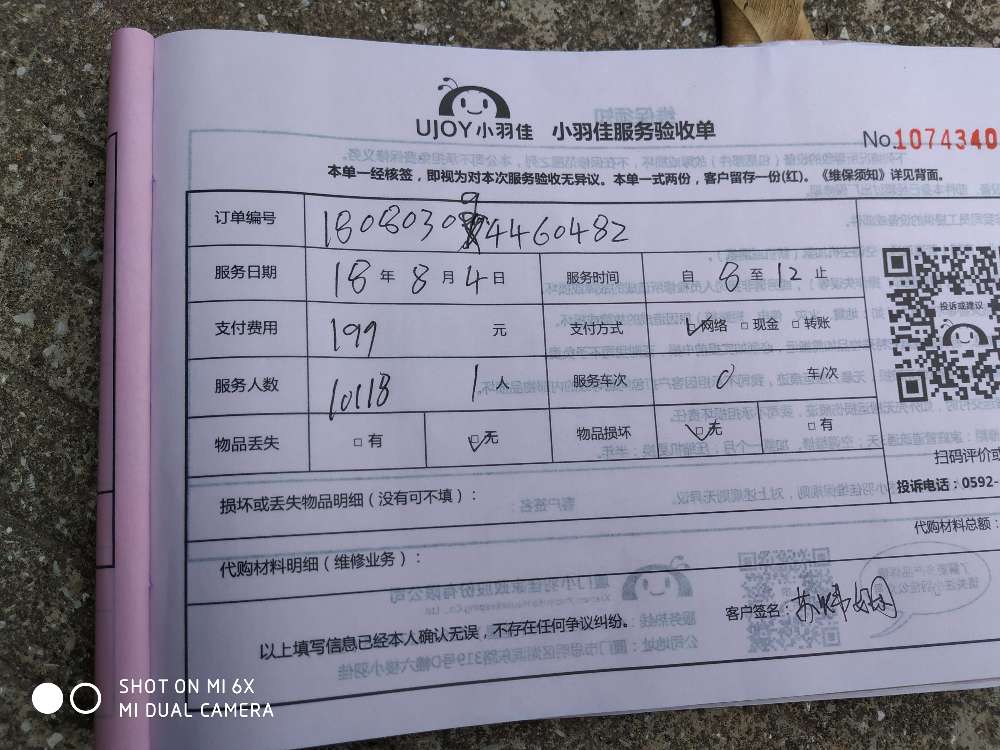 UJOY小羽佳 小羽佳服务验收单
No.1074340
本单一经核签，即视为对本次服务验收无异议。本单一式两份，客户留存一份(红)。《维保须知》详见背面。
订单编号 180803094460482
服务日期 18 年 8 月 4 日 服务时间 自 8 至 12 止
支付费用 199 元 支付方式 网络 □现金 □转账
投诉或建议
服务人数 10118 1 人 服务车次 0 车/次
物品丢失 □有 □无 物品损坏 □无 □有
扫码评价或
损坏或丢失物品明细（没有可不填）：
投诉电话：0592-
代购材料明细（维修业务）：
代购材料总额：
以上填写信息已经本人确认无误，不存在任何争议纠纷。
客户签名：苏
SHOT ON MI 6X
MI DUAL CAMERA